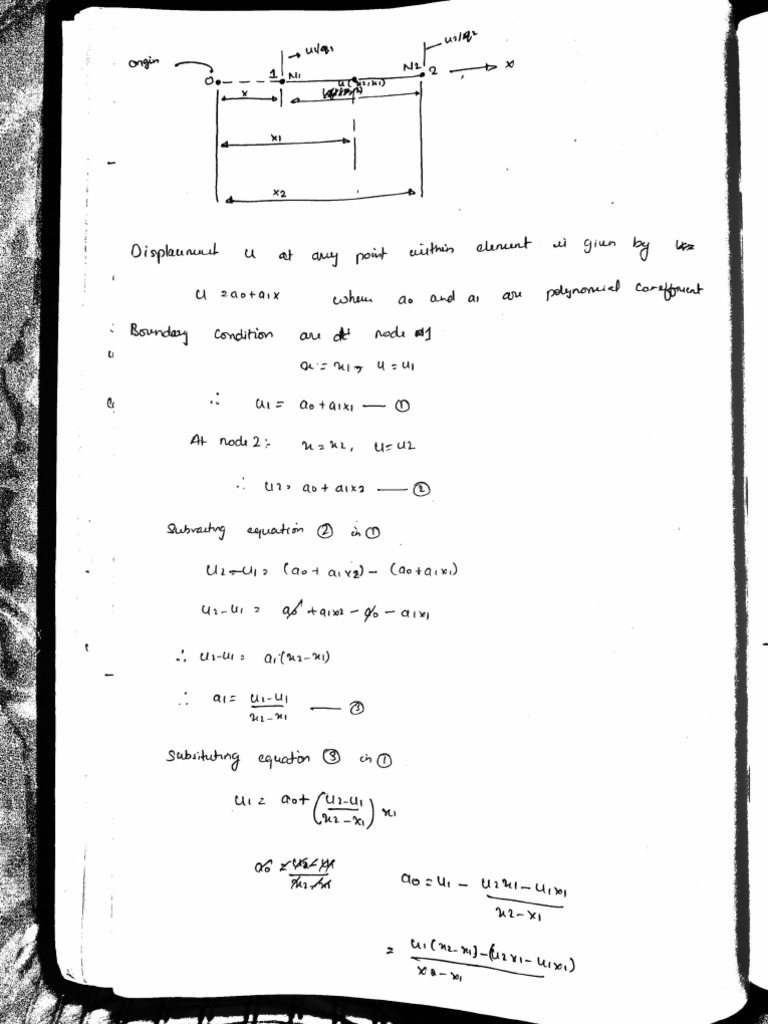 origin
u1/q1
u2/q2
0
1 N1
u(x2,x1)
N2 2
x
x
x1
x2
Displacement u at any point within element is given by
u = a0+a1x where a0 and a1 are polynomial co-efficient
Boundary Condition are at node 1
x = x1, u = u1
∴ u1 = a0+a1x1 — ①
At node 2:- x = x2, u = u2
∴ u2 = a0 + a1x2 — ②
Subracting equation ② in ①
u2-u1 = (a0 + a1x2) - (a0+a1x1)
u2-u1 = a0 + a1x2 - a0 - a1x1
∴ u2-u1 = a1(x2-x1)
∴ a1 = u1-u1 / x2-x1 — ③
Subsituting equation ③ in ①
u1 = a0+ (u2-u1 / x2-x1) x1
a0 = u1 - u2x1-u1x1 / x2-x1
= u1(x2-x1)-(u2x1-u1x1) / x2-x1